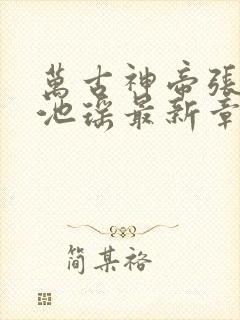 萬古神帝張
池瑤最新章
简某裕